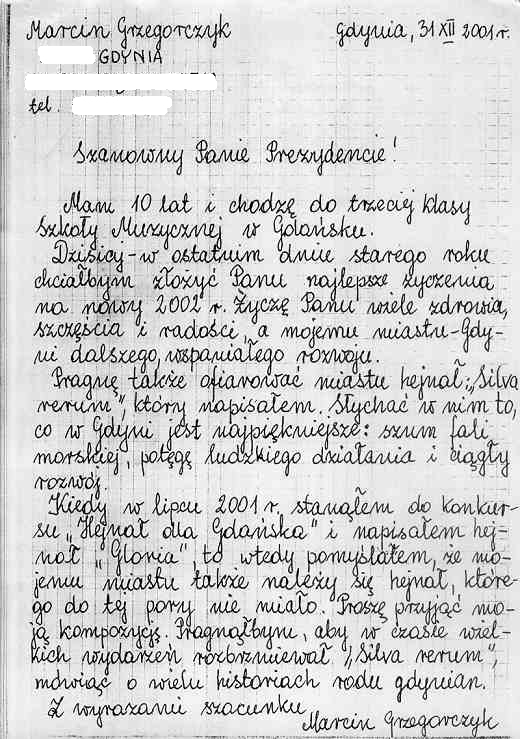 Marcin Grzegorczyk Gdynia, 31 XII 2001 r.
GDYNIA
tel.
Szanowny Panie Prezydencie!
Mam 10 lat i chodzę do trzeciej klasy
Szkoły Muzycznej w Gdańsku.
Dzisiej - w ostatnim dniu starego roku
chciałbym złożyć Panu najlepsze życzenia
na nowy 2002 r. Życzę Panu wiele zdrowia,
szczęścia i radości, a mojemu miastu - Gdy-
ni dalszego, wspaniałego rozwoju.
Pragnę także ofiarować miastu hejnał: „Silva
rerum", który napisałem. Słychać w nim to,
co w Gdyni jest najpiękniejsze: szum fali
morskiej, potęgę ludzkiego działania i ciągły
rozwój.
Kiedy w lipcu 2001 r. stanąłem do konkur-
su „Hejnał dla Gdańska" i napisałem hej-
nał „Gloria", to wtedy pomyślałem, że mo-
jemu miastu także należy się hejnał, które-
go do tej pory nie miało. Proszę przyjąć mo-
ją kompozycję. Pragnąłbym, aby w czasie wiel-
kich wydarzeń rozbrzmiewał „Silva rerum",
mówiąc o wielu historiach rodu gdynian.
Z wyrazami szacunku
Marcin Grzegorczyk